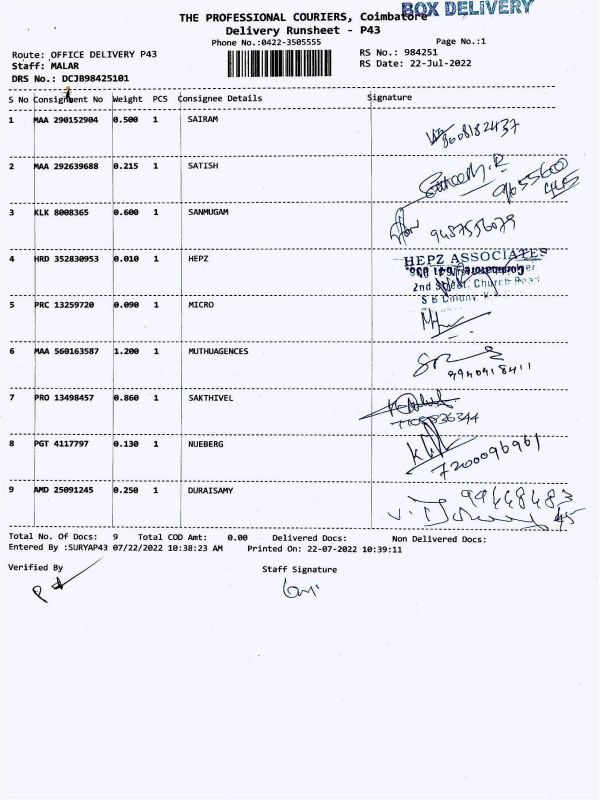 BOX DELIVERY
THE PROFESSIONAL COURIERS, Coimbatore
Delivery Runsheet - P43
Phone No.:0422-3505555 Page No.:1
Route: OFFICE DELIVERY P43 RS No.: 984251
Staff: MALAR RS Date: 22-Jul-2022
DRS No.: DCJB98425101
S No Consignment No Weight PCS Consignee Details Signature
1 MAA 290152904 0.500 1 SAIRAM
8608182437
2 MAA 292639688 0.215 1 SATISH
3 KLK 8008365 0.600 1 SANMUGAM
9487556079
4 HRD 352830953 0.010 1 HEPZ
HEPZ ASSOCIATES
2nd Street, Church Road
S B Colony
5 PRC 13259720 0.090 1 MICRO
6 MAA 560163587 1.200 1 MUTHUAGENCES
9940918411
7 PRO 13498457 0.860 1 SAKTHIVEL
8 PGT 4117797 0.130 1 NUEBERG
7200096961
9 AMD 25091245 0.250 1 DURAISAMY
99448483
45
Total No. Of Docs: 9 Total COD Amt: 0.00 Delivered Docs: Non Delivered Docs:
Entered By :SURYAP43 07/22/2022 10:38:23 AM Printed On: 22-07-2022 10:39:11
Verified By Staff Signature